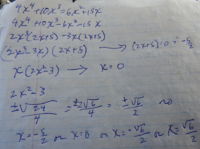 4x⁴+10x³=6x²+15x
4x⁴+10x³-6x²-15x
2x³(2x+5) -3x(2x+5)
(2x³-3x)(2x+5) → (2x+5)=0 = -5/2
x(2x²-3) → x=0
2x²-3
±√24/4 = ±2√6/4 = ±√6/2
x=-5/2 or x=0 or x=-√6/2 or x=√6/2